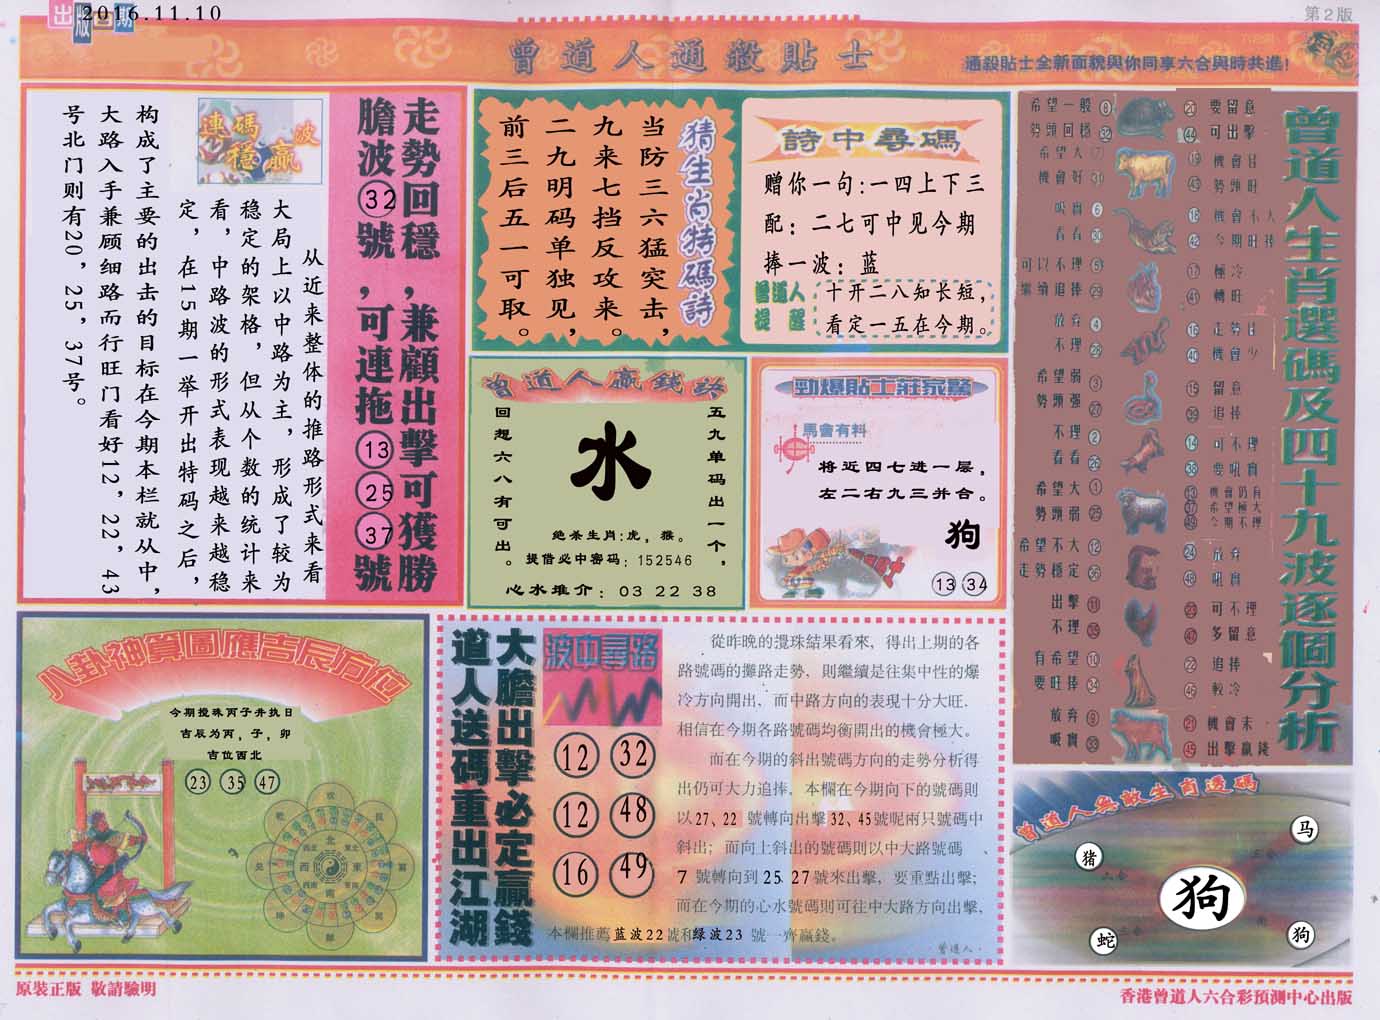 出版日期
2016.11.10
第2版
曾道人通殺貼士
通殺貼士全新面貌與你同享六合與時共進!
走勢回穩,兼顧出擊可獲勝
膽波32號,可連拖13 25 37號
連碼穩贏波
从近来整体的推路形式来看
大局上以中路为主,形成了较为
稳定的架格,但从个数的统计来
看,中路波的形式表现越来越稳
定,在15期一举开出特码之后,
构成了主要的出击的目标在今期本栏就从中,
大路入手兼顾细路而行旺门看好12,22,43
号北门则有20,25,37号。
猜生肖特碼詩
当防三六猛突击,
九来七挡反攻来。
二九明码单独见,
前三后五一可取。
詩中尋碼
赠你一句:一四上下三
配:二七可中见今期
捧一波:蓝
曾道人提醒
十开二八知长短,
看定一五在今期。
曾道人贏錢詩
五九单码出一个,
回想六八有可出。
水
绝杀生肖:虎,猴。
提借必中密码:152546
心水推介:03 22 38
勁爆貼士莊家驚
馬會有料
将近四七进一层,
左二右九三并合。
狗
13 34
曾道人生肖選碼及四十九波逐個分析
希望一般 8 20 要留意
勢頭回穩 32 44 可出擊
希望大 7 19 機會佳
機會好 31 43 勢頭旺
吸實 6 18 機會不大
看看 30 42 今期旺捧
可以不理 5 17 極冷
繼續追捧 29 41 轉旺
放弃 4 16 走勢佳
不理 28 40 機會少
希望弱 3 15 留意
勢頭强 27 39 追捧
不理 2 14 可不理
看看 26 38 要吼實
希望大 1 13 機會仍有
37 希望極大
勢頭弱 25 49 今期不理
希望不大 12 24 放弃
走勢穩定 36 48 吼實
出擊 11 23 可不理
不理 35 47 多留意
有希望 10 22 追捧
要旺捧 34 46 較冷
放弃 9 21 機會末
吸實 33 45 出擊贏錢
八卦神算圖應吉辰方位
今期搅珠丙子井执日
吉辰为丙,子,卯
吉位西北
23 35 47
北
西 東
南
大膽出擊必定贏錢
道人送碼重出江湖
波中尋路
12 32
12 48
16 49
從昨晚的攪珠結果看來,得出上期的各
路號碼的攤路走勢,則繼續是往集中性的爆
冷方向開出,而中路方向的表現十分大旺.
相信在今期各路號碼均衡開出的機會極大。
而在今期的斜出號碼方向的走勢分析得
出仍可大力追捧,本欄在今期向下的號碼則
以27、22 號轉向出擊32、45號呢兩只號碼中
斜出;而向上斜出的號碼則以中大路號碼、
7 號轉向到25 27號來出擊,要重點出擊;
而在今期的心水號碼則可往中大路方向出擊,
本欄推薦蓝波22號和绿波23 號一齊贏錢。
曾道人·
曾道人無敵生肖透碼
猪
马
狗
蛇
狗
原裝正版 敬請驗明
香港曾道人六合彩預測中心出版